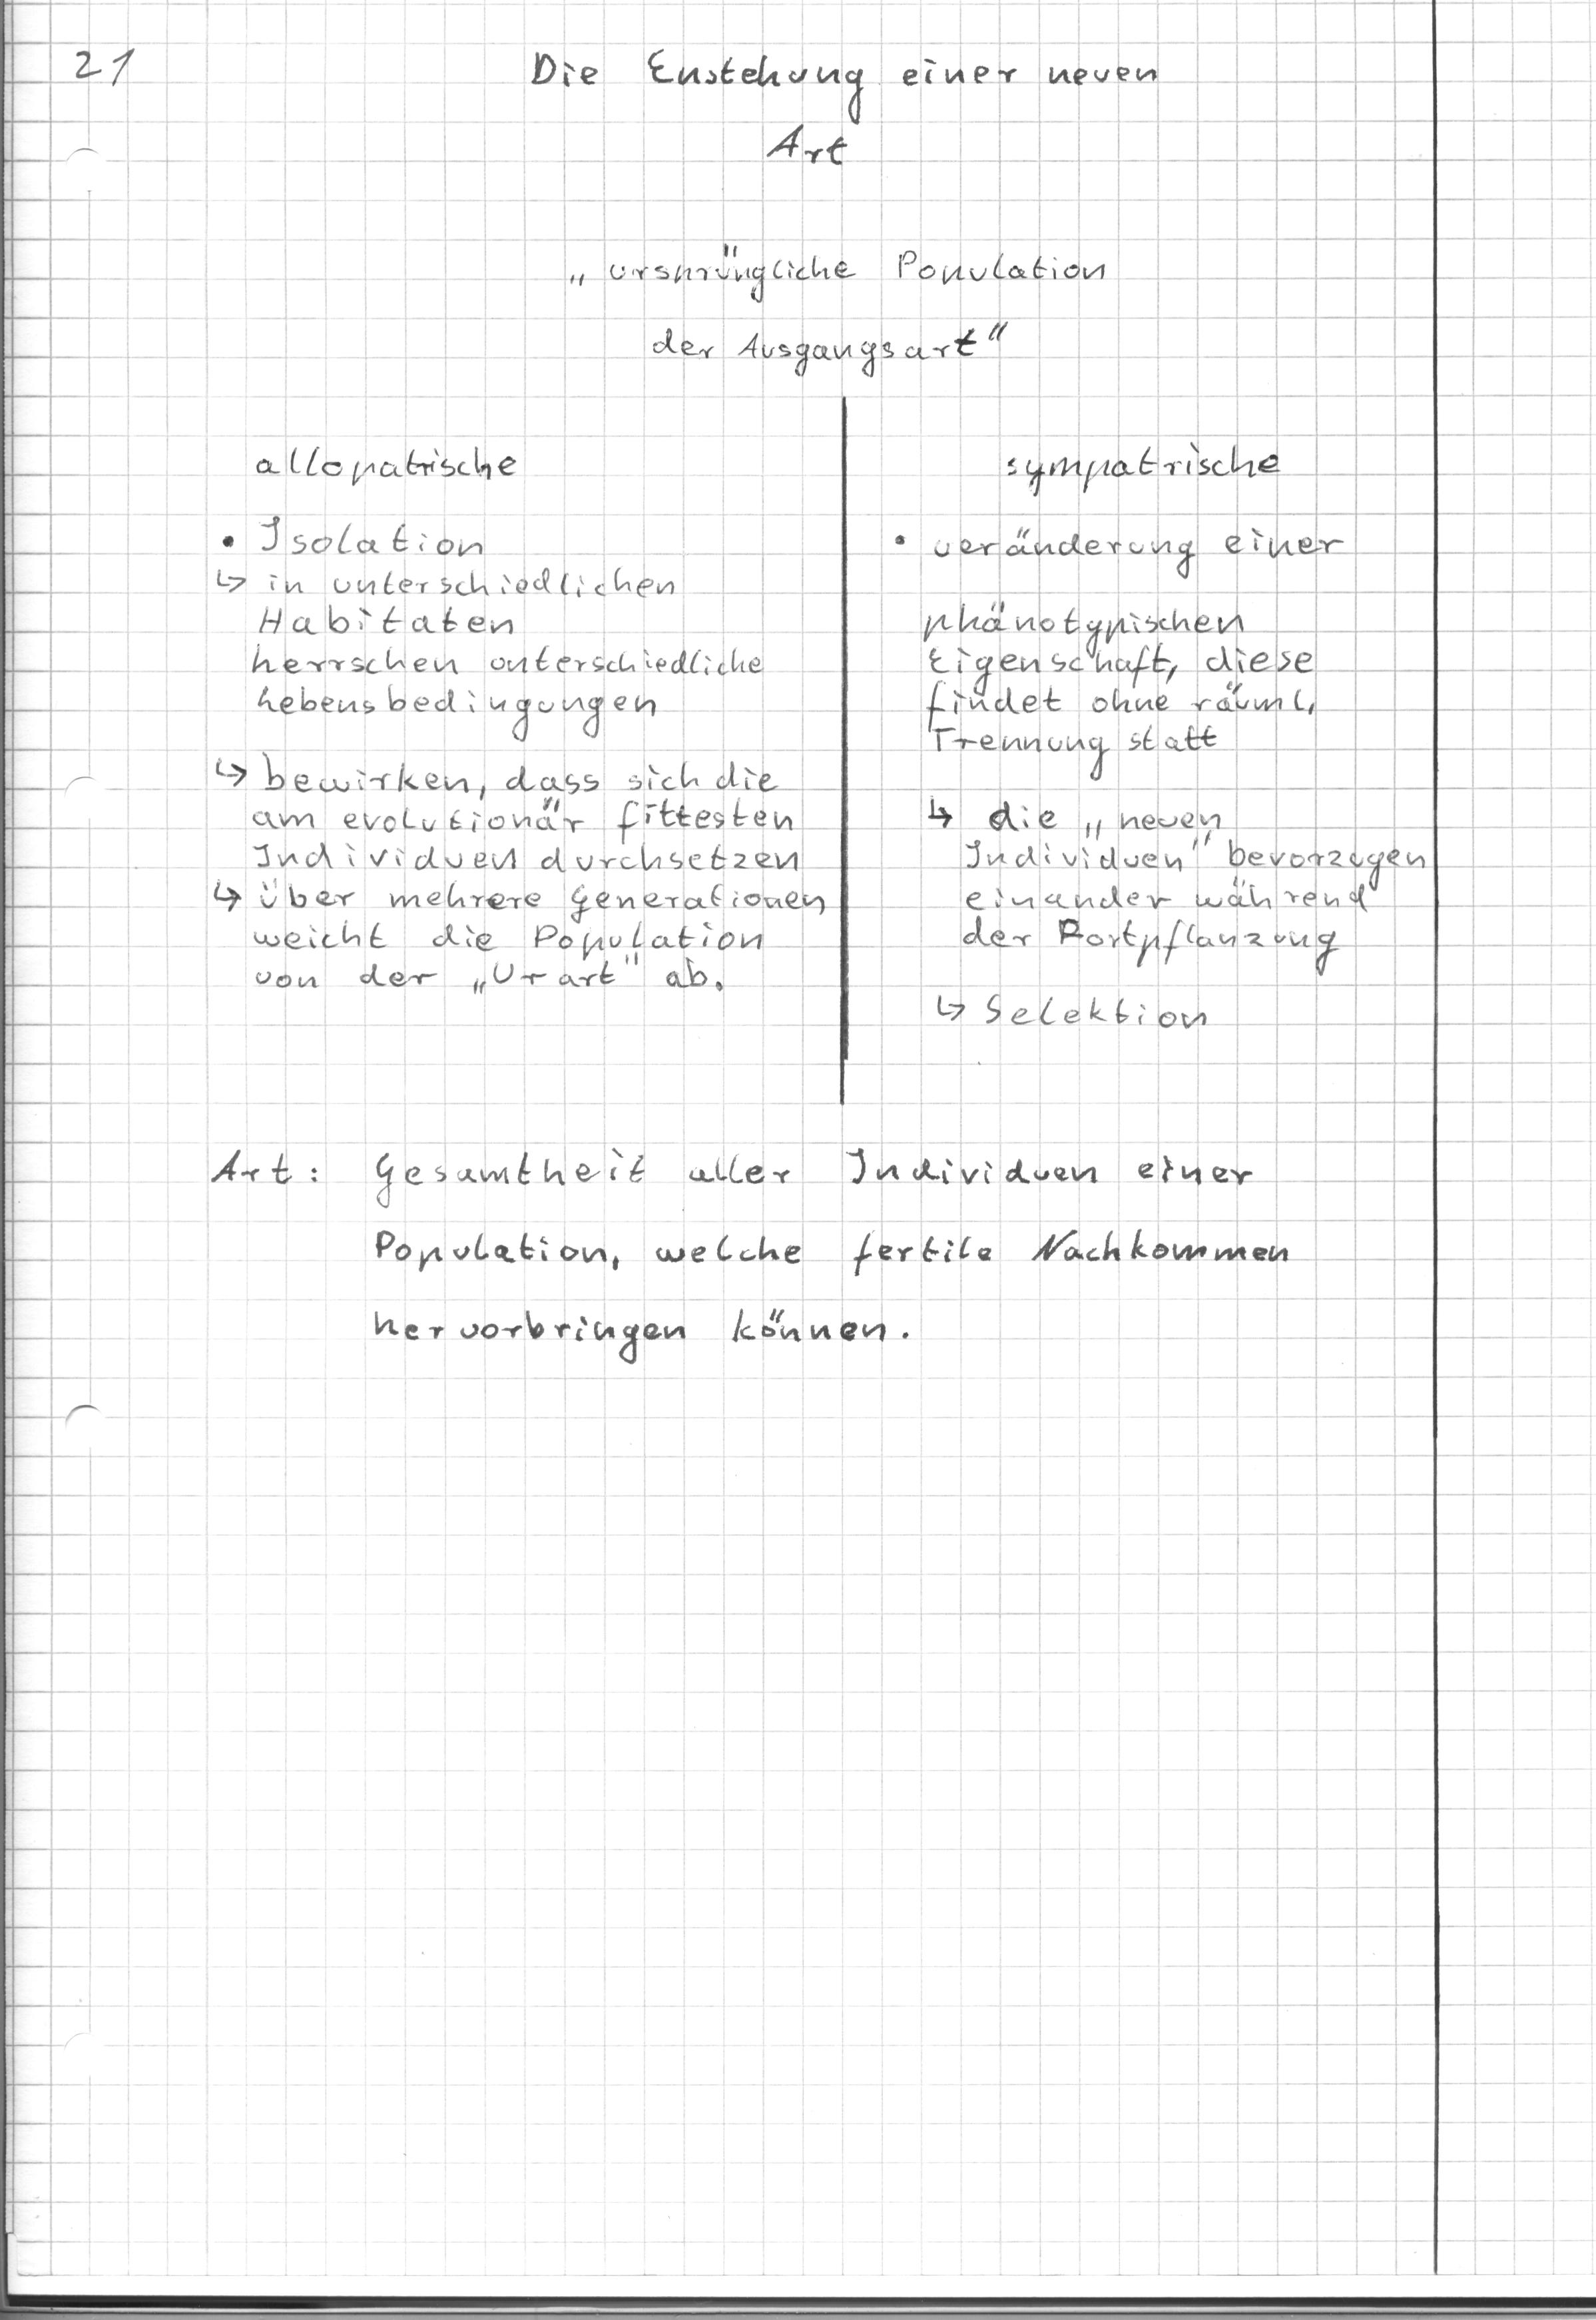 21
Die Enstehung einer neuen
Art
„ursprüngliche Population
der Ausgangsart"
allopatrische
• Isolation
↳ in unterschiedlichen
Habitaten
herrschen unterschiedliche
Lebensbedingungen
↳ bewirken, dass sich die
am evolutionär fittesten
Individuen durchsetzen
↳ über mehrere Generationen
weicht die Population
von der „Urart" ab.
sympatrische
• veränderung einer
phänotypischen
Eigenschaft, diese
findet ohne räuml.
Trennung statt
↳ die „neuen
Individuen" bevorzugen
einander während
der Fortpflanzung
↳ Selektion
Art: Gesamtheit aller Individuen einer
Population, welche fertile Nachkommen
hervorbringen können.